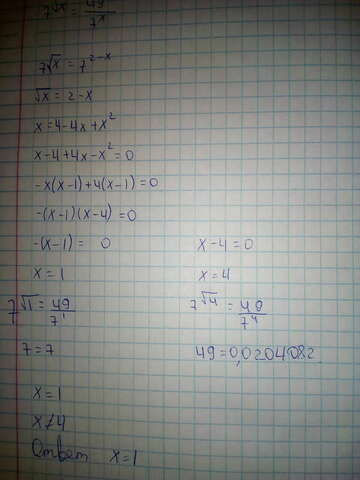 7^√x = 49/7^x
7^√x = 7^2-x
√x = 2-x
x=4-4x+x²
x-4+4x-x²=0
-x(x-1)+4(x-1)=0
-(x-1)(x-4)=0
-(x-1)= 0 x-4=0
x=1 x=4
7^√1 = 49/7^1 7^√4 = 49/7^4
7=7 49=0,0204082
x=1
x≠4
Ответ x=1